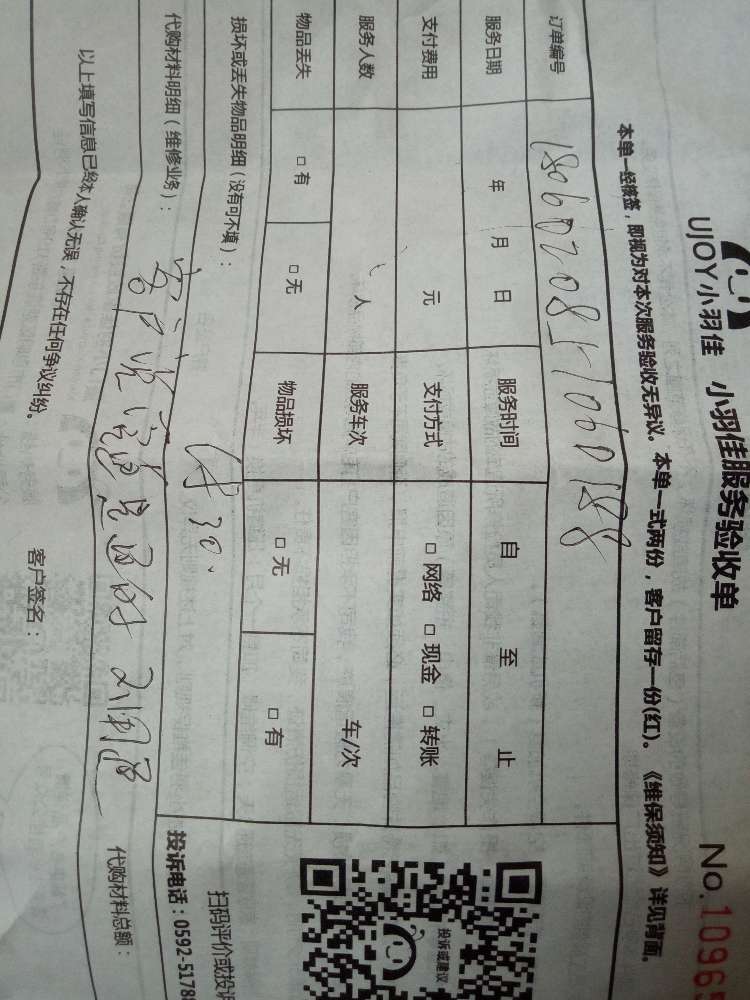 UJOY小羽佳 小羽佳服务验收单
No.10965
本单一经核签，即视为对本次服务验收无异议。本单一式两份，客户留存一份(红)。《维保须知》详见背面。
订单编号
服务日期 年 月 日 服务时间 自 至 止
支付费用 元 支付方式 □ 网络 □ 现金 □ 转账
服务人数 人 服务车次 车/次
物品丢失 □ 有 □ 无 物品损坏 □ 无 □ 有
损坏或丢失物品明细(没有可不填)：
代购材料明细(维修业务)：
代购材料总额：
以上填写信息已经本人确认无误，不存在任何争议纠纷。
客户签名：
投诉或建议
扫码评价或投诉
投诉电话：0592-5178